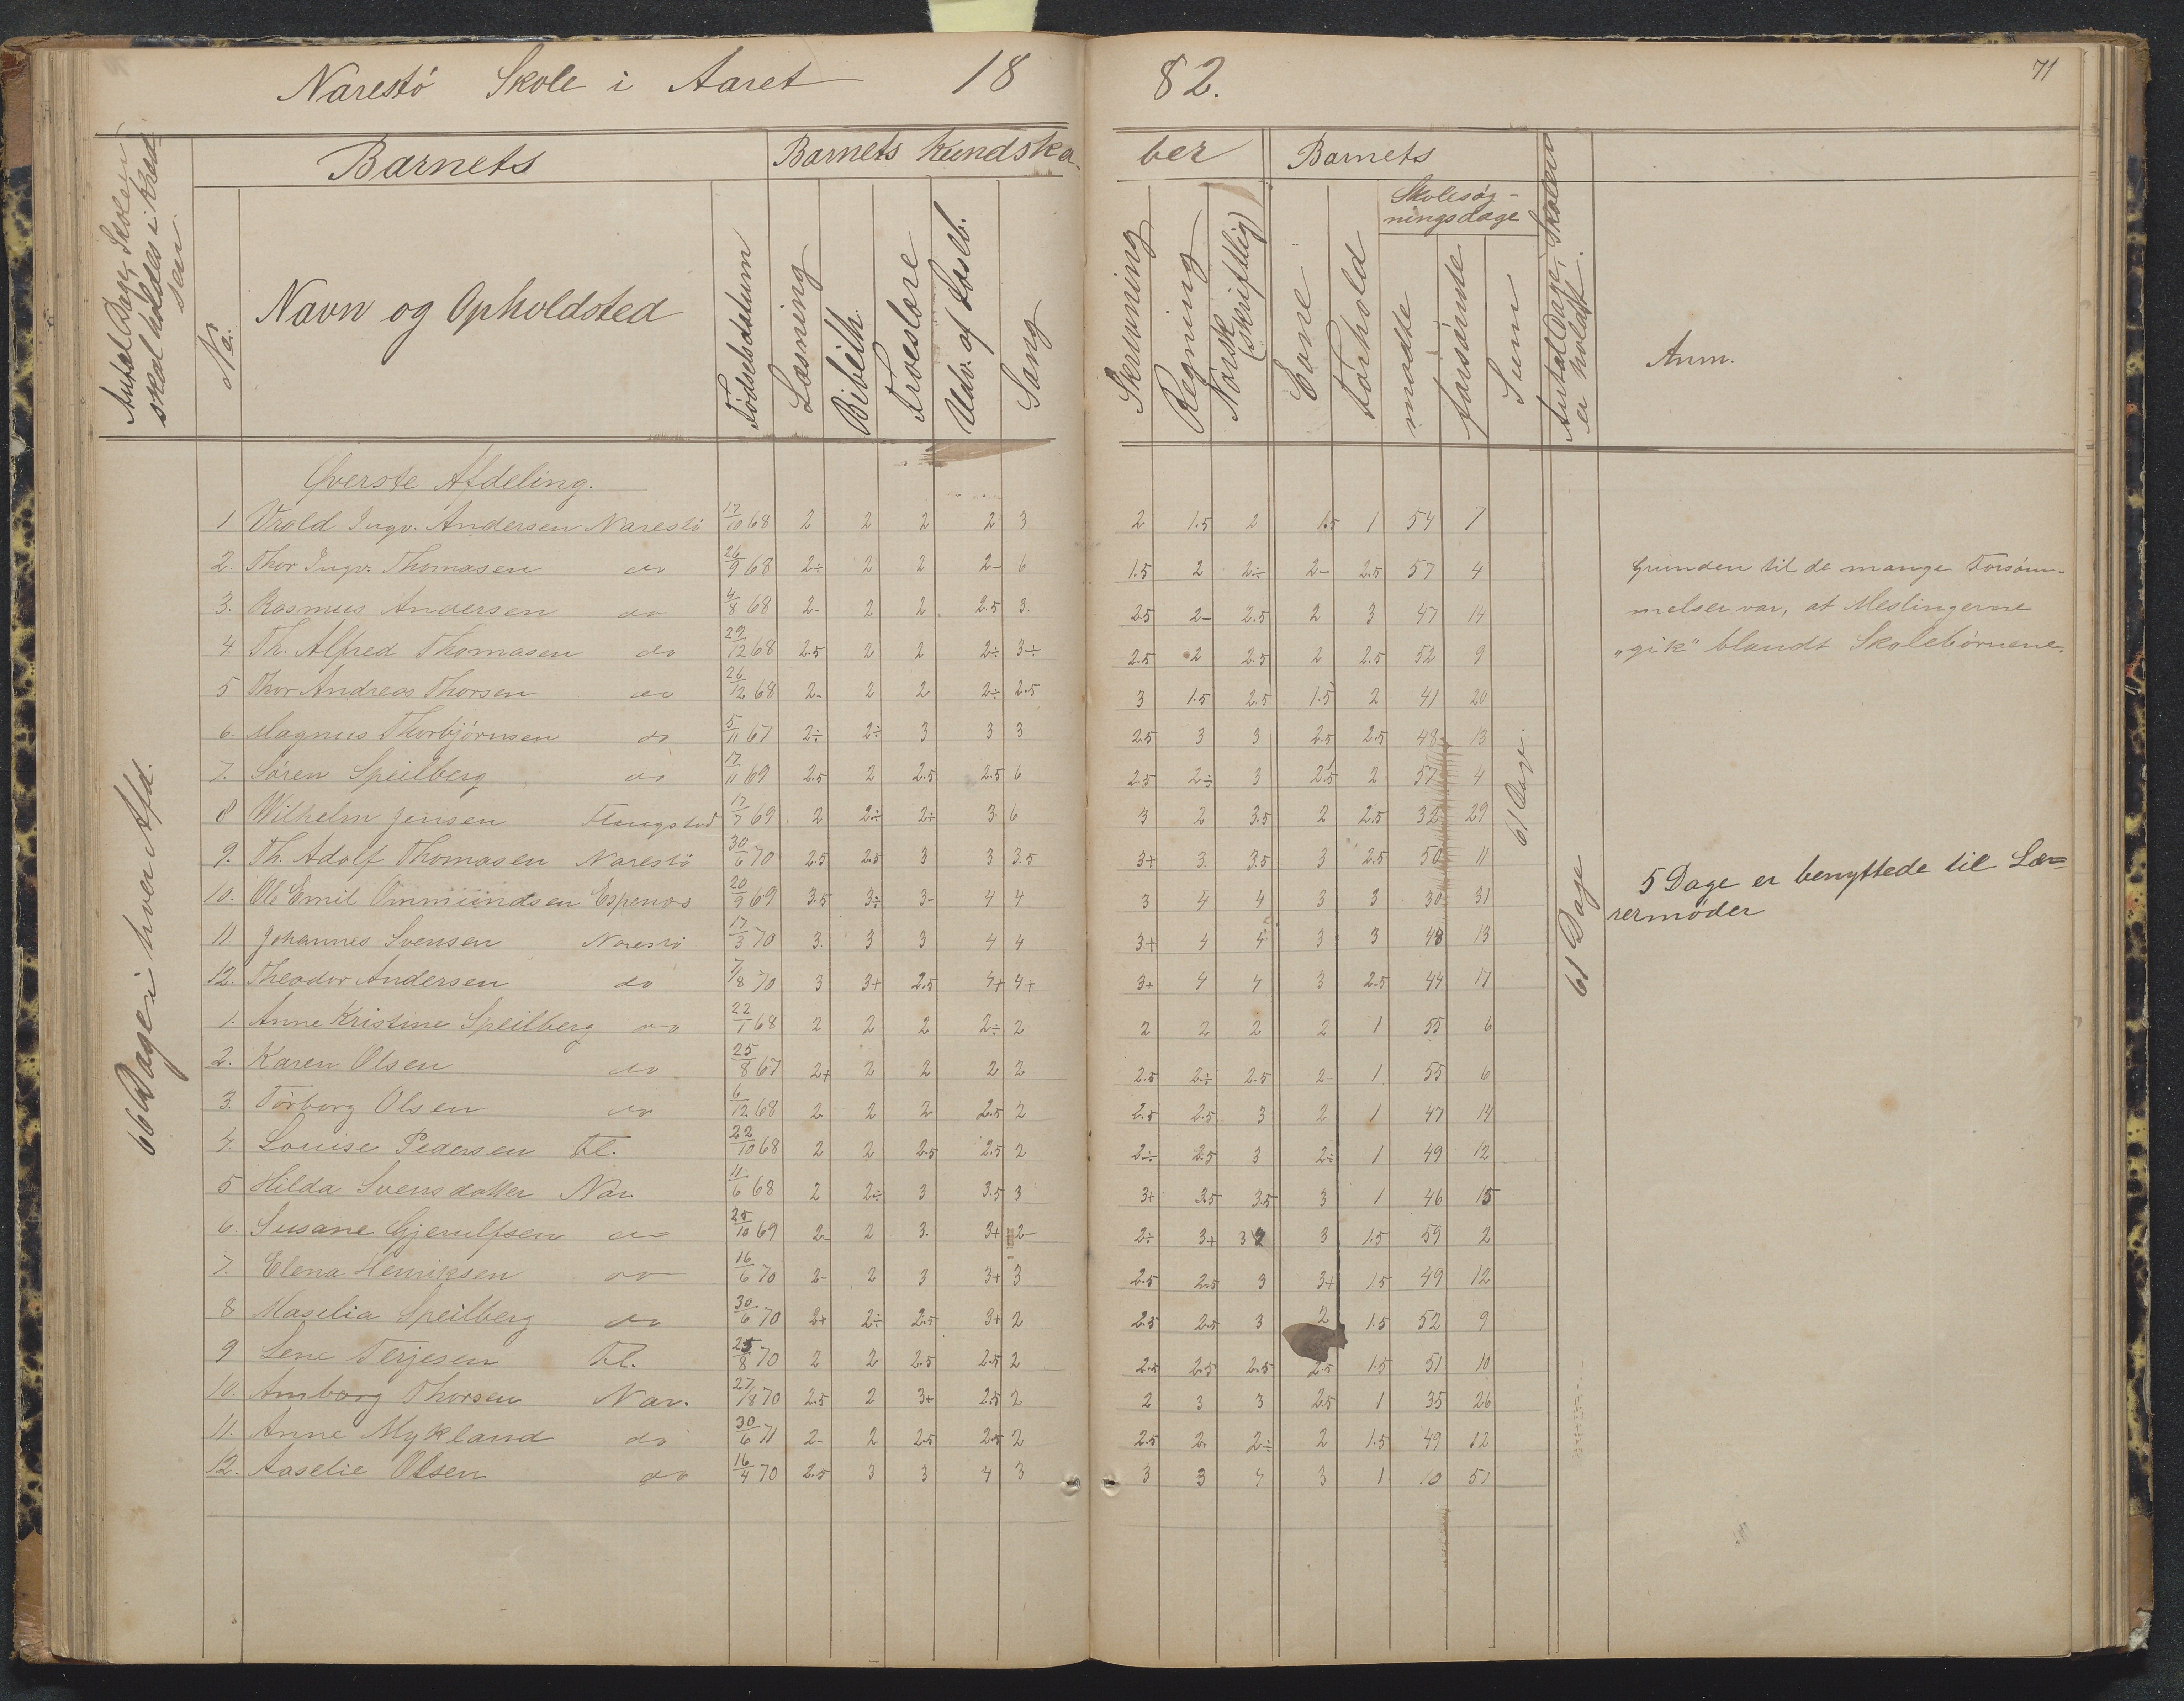 Narestö Skole i Aaret 18 82.
71
Antal Dage, Skolen skal holdes i Kredsen.
No.
Barnets
Navn og Opholdsted
Fødselsdatum
Barnets Kundska- ber
Læsning
Bibelh.
Troeslære
Udv. af Læseb.
Sang
Skrivning
Regning
Norsk (skriftlig)
Barnets
Evne
Forhold
Skolesøg-
ningsdage
mødte
forsømte
Sum
Antal Dage, Skolen er holdt.
Anm.
66 Dage i hver Afd.
Øverste Afdeling.
1 Vrold Ingv. Andersen Narestö 17/10 68 2 2 2 2 3 2 1.5 2 1.5 1 54 7
2. Thor Ingv. Thomasen do 26/9 68 2÷ 2 2 2- 6 1.5 2 2÷ 2- 2.5 57 4
3. Rasmus Andersen do 4/8 68 2- 2 2 2.5 3. 2.5 2- 2.5 2 3 47 14
4. Th. Alfred Thomasen do 29/12 68 2.5 2 2 2÷ 3÷ 2.5 2 2.5 2 2.5 52 9
5 Thor Andreas Thorsen do 26/12 68 2- 2 2 2÷ 2.5 3 1.5 2.5 1.5 2 41 20
6. Magnus Thorbjörnsen do 5/11 67 2÷ 2÷ 3 3 3 2.5 3 3 2.5 2.5 48 13
7. Sören Speilberg do 17/11 69 2.5 2 2.5 2.5 6 2.5 2÷ 3 2.5 2 57 4
8 Wilhelm Jensen Flangstad 17/7 69 2 2÷ 2÷ 3 6 3 2 3.5 2 2.5 32 29
9. Th. Adolf Thomasen Narestö 30/6 70 2.5 2.5 3 3 3.5 3+ 3. 3.5 3 2.5 50 11
10. Ole Emil Ommundsen Espenes 20/9 69 3.5 3÷ 3- 4 4 3 4 4 3 3 30 31
11. Johannes Svensen Narestö 17/3 70 3. 3 3 4 4 3+ 4 4 3 3 48 13
12. Theodor Andersen do 7/8 70 3 3+ 2.5 4+ 4+ 3+ 4 4 3 2.5 44 17
1. Anne Kristine Speilberg do 22/1 68 2 2 2 2÷ 2 2 2 2 2 1 55 6
2. Karen Olsen do 25/8 67 2+ 2 2 2 2 2.5 2÷ 2.5 2- 1 55 6
3. Torborg Olsen do 6/12 68 2 2 2 2.5 2 2.5 2.5 3 2 1 47 14
4. Louise Pedersen Fl. 22/10 68 2 2 2.5 2.5 2 2÷ 2.5 3 2÷ 1 49 12
5 Hilda Svensdatter Nar. 11/6 68 2 2÷ 3 3.5 3 3+ 3.5 3.5 3 1 46 15
6. Susane Gjerulfsen do 25/10 69 2- 2 3. 3+ 2- 2÷ 3+ 3 3 1.5 59 2
7. Elena Henriksen do 16/6 70 2- 2 3 3+ 3 2.5 2.5 3 3+ 1.5 49 12
8 Maselia Speilberg do 30/6 70 2+ 2÷ 2.5 3+ 2 2.5 2.5 3 2 1.5 52 9
9 Lene Terjesen Fl. 25/8 70 2 2 2.5 2.5 2 2.5 2.5 2.5 2.5 1.5 51 10
10. Amborg Thorsen Nar. 27/8 70 2.5 2 3+ 2.5 2 2 3 3 2.5 1 35 26
11. Anne Mykland do 30/6 71 2- 2 2.5 2.5 2 2.5 2. 2÷ 2 1.5 49 12
12. Aaselie Olsen do 16/4 70 2.5 3 3 4 3 3 3 4 3 1 10 51
61 Dage.
61 Dage
Grunden til de mange Forsöm-
melser var, at Meslingerne
"gik" blandt Skolebörnene.
5 Dage er benyttede til Læ-
rermöder